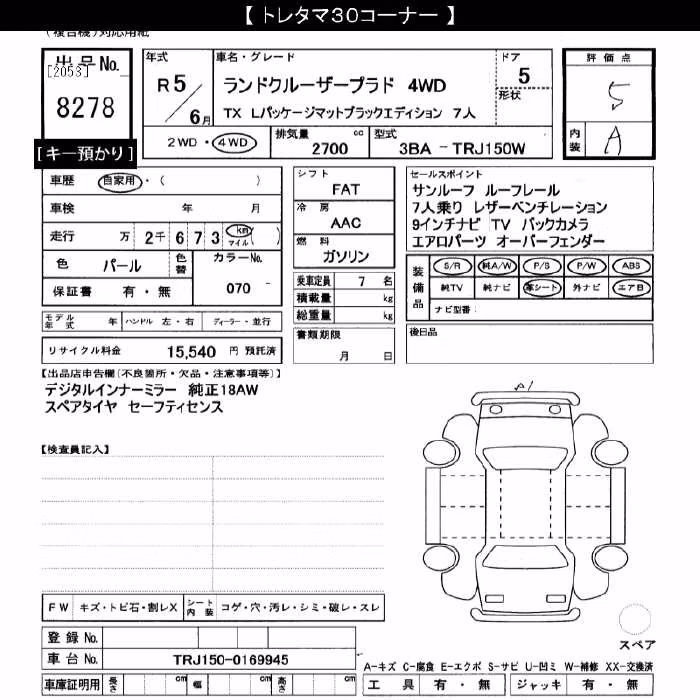 【 トレタマ30コーナー 】
(複合機)対応用紙
出品No.
[2053]
8278
[キー預かり]
年式
R 5 / 6月
車名・グレード
ランドクルーザープラド 4WD
TX Lパッケージマットブラックエディション 7人
ドア
5
形状
評価点
5
内装
A
2WD・4WD
排気量
2700 cc
型式
3BA - TRJ150W
車歴 自家用・( )
車検 年 月
走行 万 2千 6 7 3 km マイル ( )
色 パール
色替
カラーNo.
070 -
保証書 有・無
モデル年式 年 ハンドル 左・右 ディーラー・並行
リサイクル料金 15,540 円 預託済
シフト
FAT
冷房
AAC
燃料
ガソリン
乗車定員 7 名
積載量 kg
総重量 kg
書類期限
月 日
セールスポイント
サンルーフ ルーフレール
7人乗り レザーベンチレーション
9インチナビ TV バックカメラ
エアロパーツ オーバーフェンダー
装備品
S/R 純A/W P/S P/W ABS
純TV 純ナビ 革シート 外ナビ エアB
ナビ型番:
後日品
【出品店申告欄(不良箇所・欠品・注意事項等)】
デジタルインナーミラー 純正18AW
スペアタイヤ セーフティセンス
【検査員記入】
A1
FW キズ・トビ石・割レX
シート内装 コゲ・穴・汚レ・シミ・破レ・スレ
登録 No.
車台 No. TRJ150-0169945
車庫証明用 長さ cm 幅 cm 高さ cm
スペア
A-キズ C-腐食 E-エクボ S-サビ U-凹ミ W-補修 XX-交換済
工具 有・無 ジャッキ 有・無